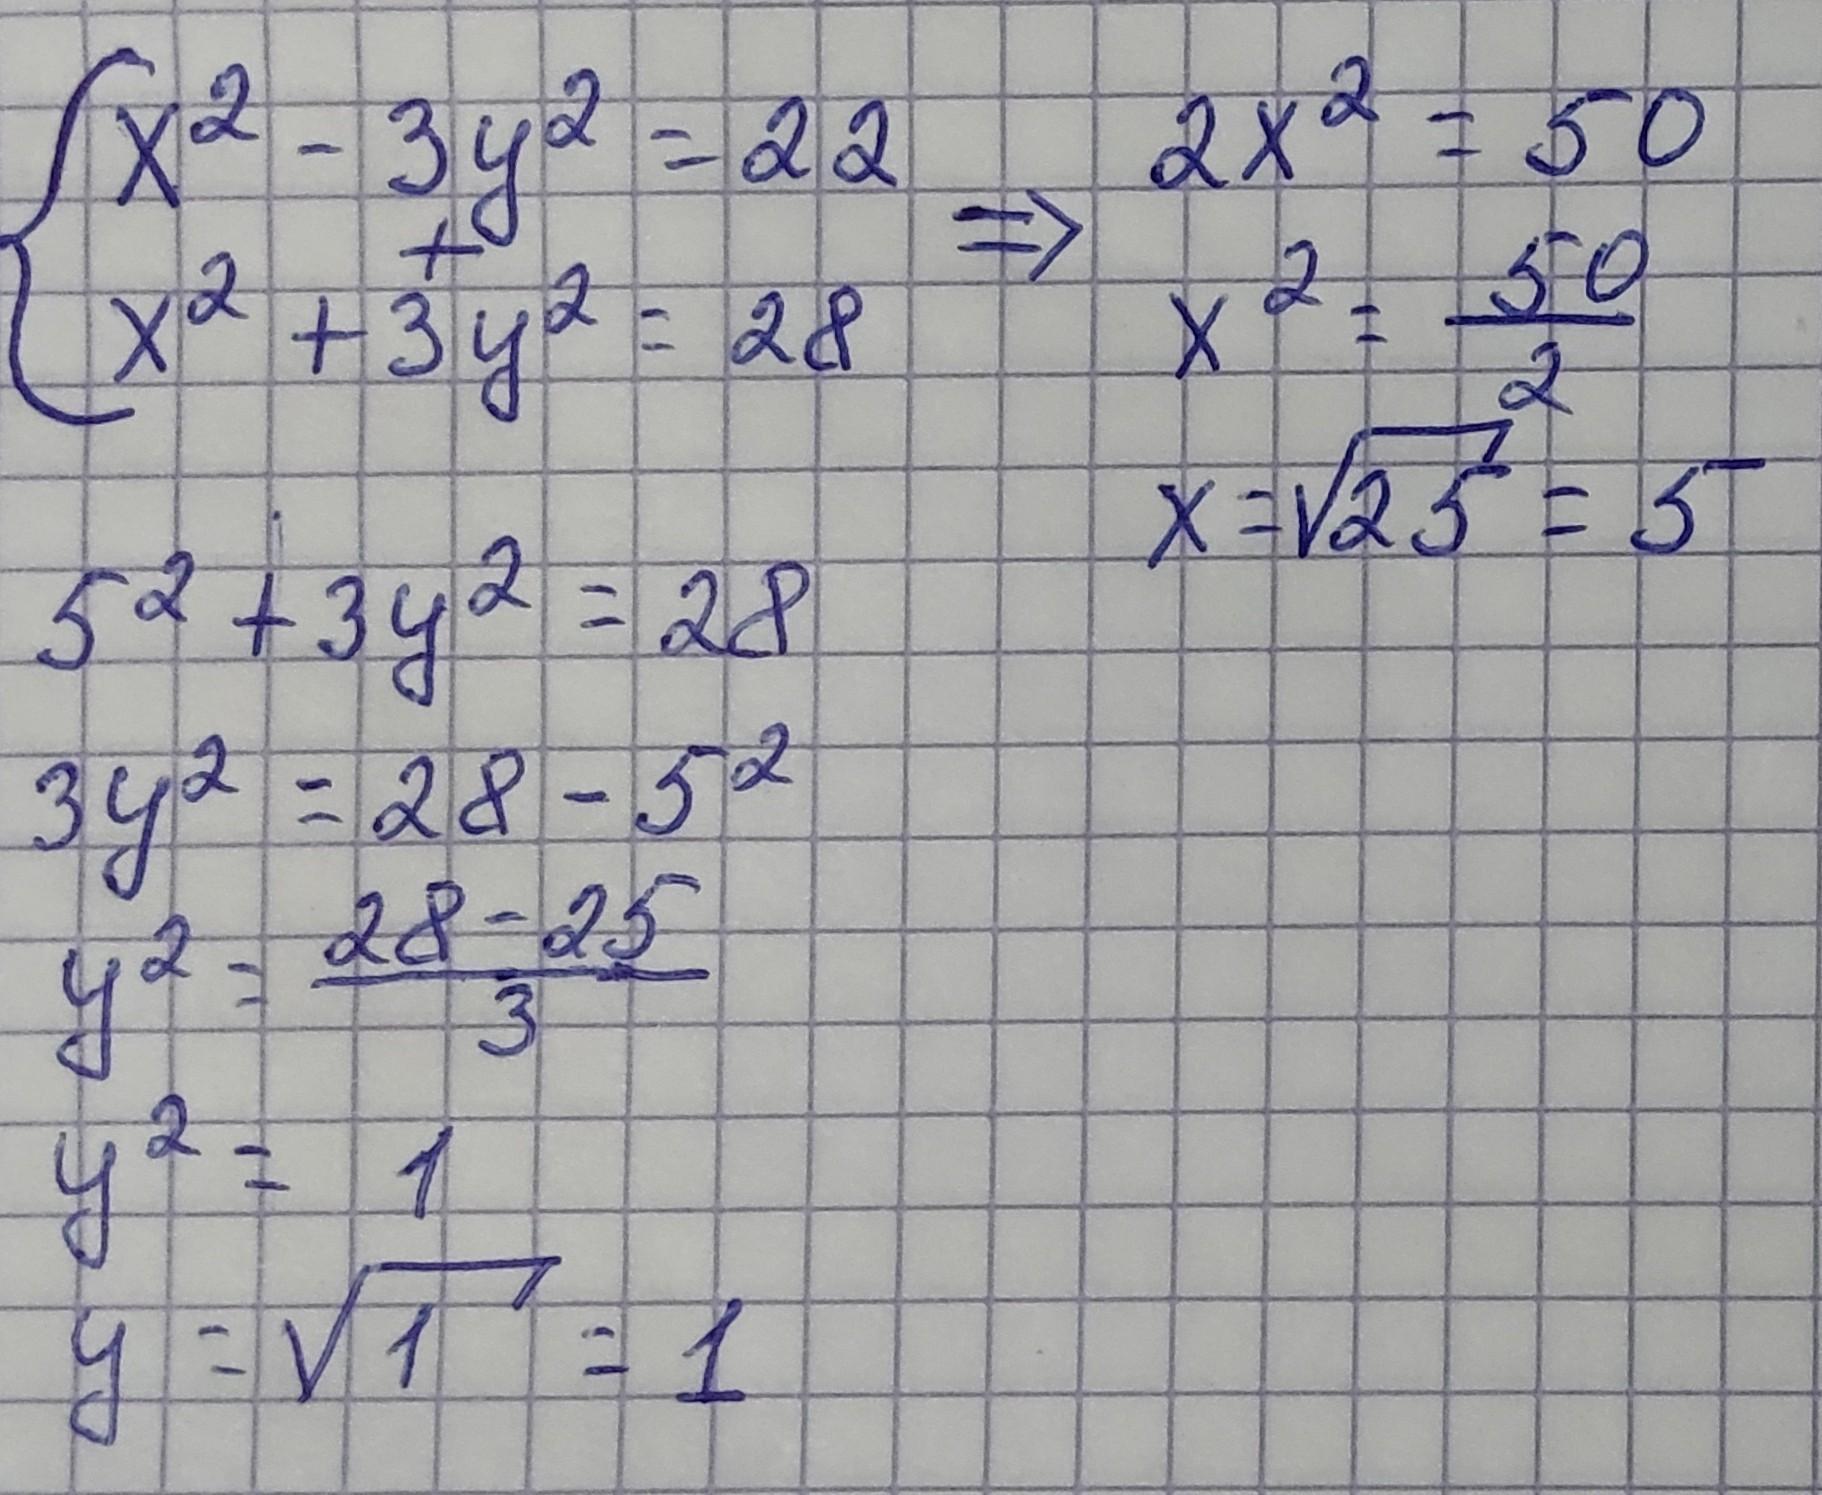 x² - 3y² = 22
+
x² + 3y² = 28
⇒
2x² = 50
x² = 50/2
x = √25 = 5
5² + 3y² = 28
3y² = 28 - 5²
y² = (28 - 25)/3
y² = 1
y = √1 = 1